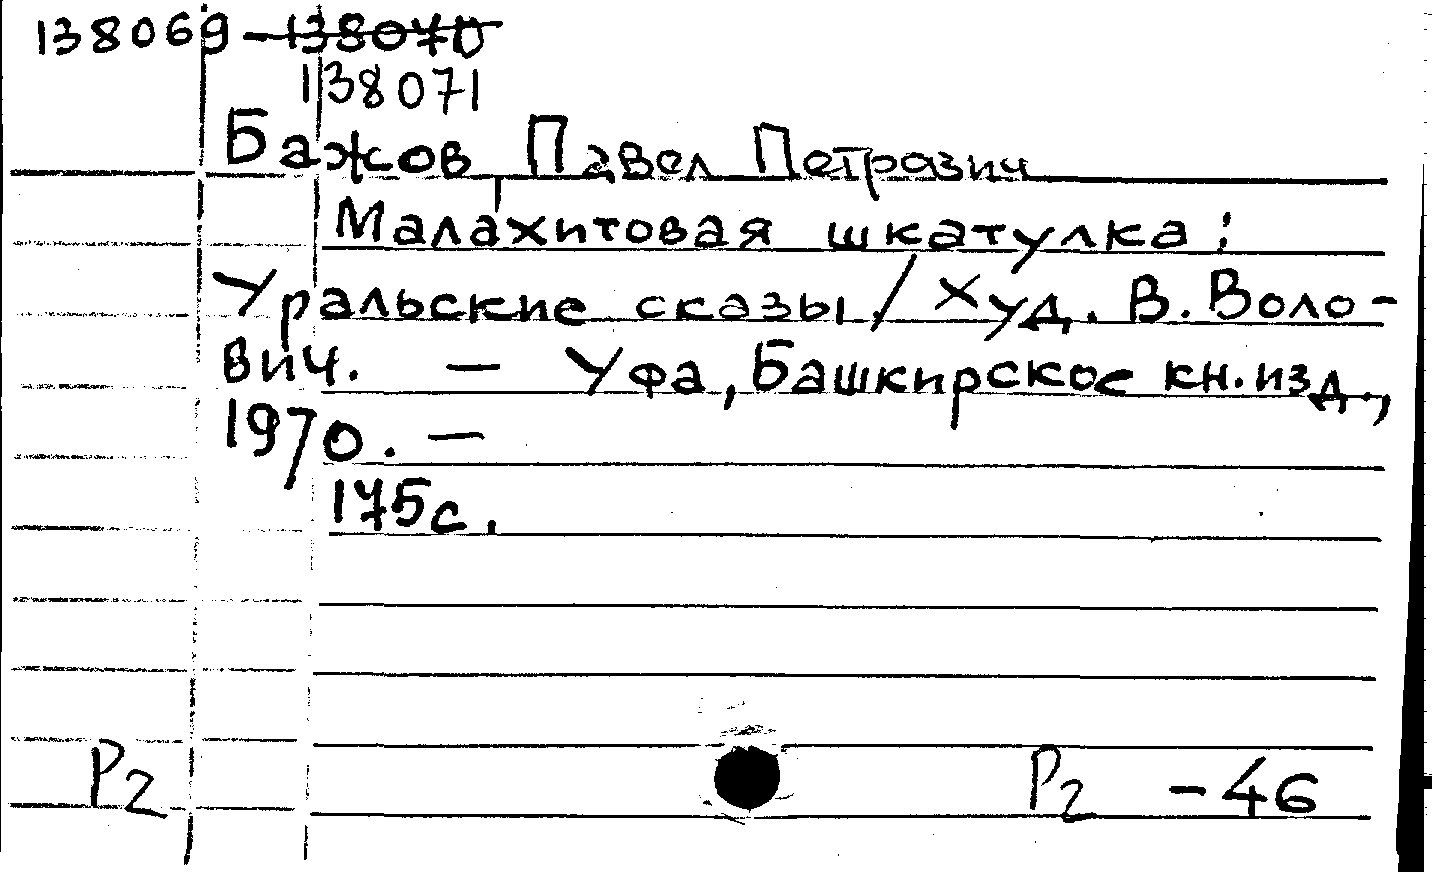 138069 – 138070
138071
Бажов, Павел Петрович
Малахитовая шкатулка:
Уральские сказы / Худ. В. Воло-
вич. – Уфа, Башкирское кн. изд.,
1970. –
175с.
Р2 Р2 – 46